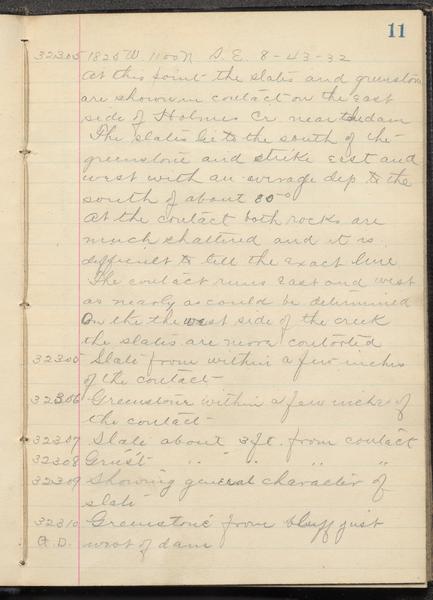 11
32305 1825 W. 1100 N S.E. 8-43-32
At this point the slates and greenstone
are shown in contact on the East
side of Holmes Cr. near the dam
The slates lie to the south of the
greenstone and strike East and
west with an average dip to the
south of about 80°
At the contact both rocks are
much shattered and it is
difficult to tell the exact line
The contact runs East and west
as nearly as could be determined
On the the west side of the creek
the slates are more contorted
32305 Slate from within a few inches
of the contact
32306 Greenstone within a few inches of
the contact
32307 Slate about 3 ft. from contact
32308 " " " "
32309 Showing general character of
slate
32310 Greenstone from bluff just
west of dam